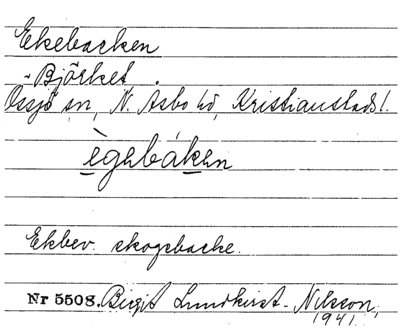 Ekebacken
- Björket.
Össjö sn, N. Åsbo hd, Kristianstads l.
ègəbákən
Ekbev. skogsbacke.
Nr 5508. Birgit Lundkvist-Nilsson,
1941.